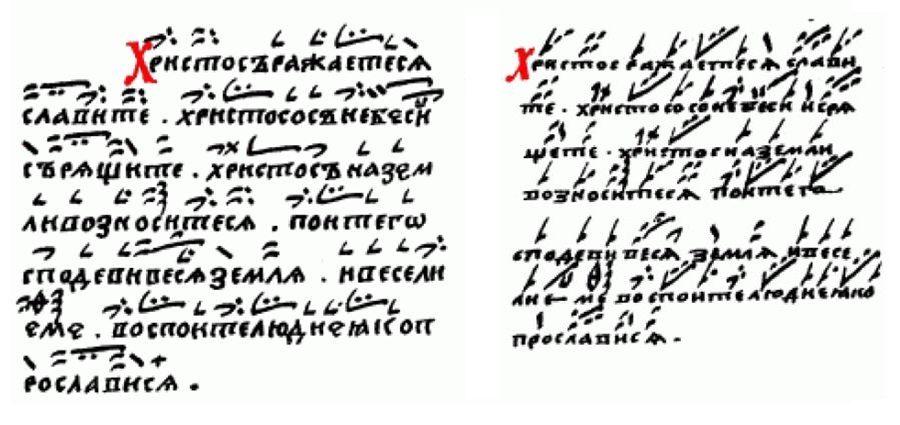 Христосъражаетеся
славите . христососънебеси
сърящите . христосъназем
ливозноситеся . поитегѡ
сподевивесяземля . ивесели
еме . воспоителюдиеꙗкоп
рославися .
Христос ражаетеся слави
те . христососонебеси исря
щете . христосназемли
возноситеся поитего
сподевивеся земля ивесе
лие ме воспоителюдиеꙗко
прославися .